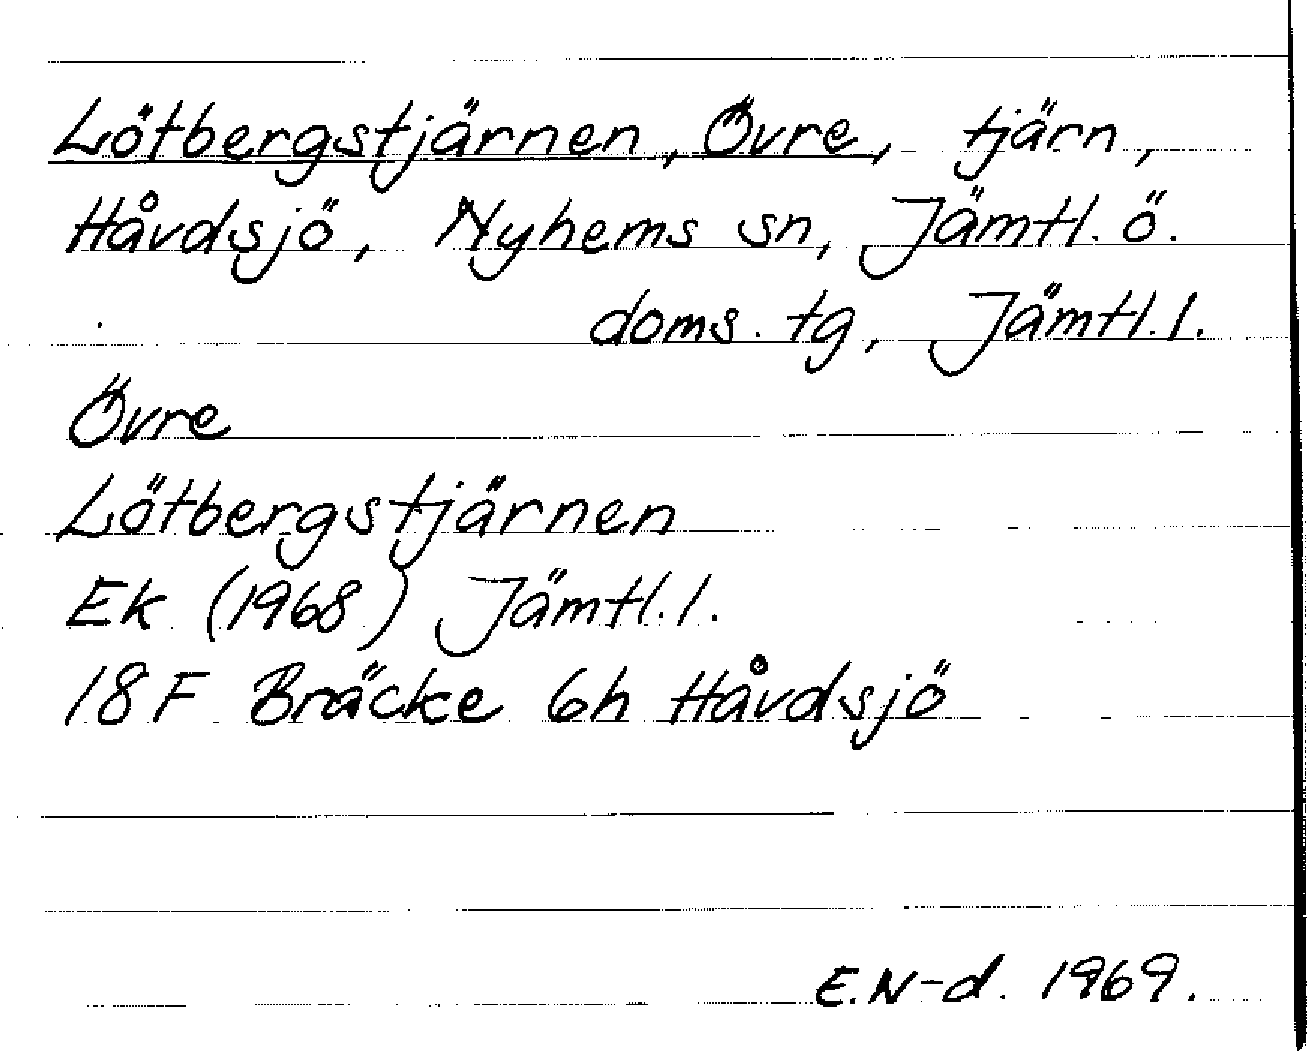 Lötbergstjärnen, Övre, tjärn,
Håvdsjö, Nyhems sn, Jämtl. ö.
doms. tg, Jämtl. l.
Övre
Lötbergstjärnen
Ek (1968) Jämtl. l.
18 F Bräcke 6h Håvdsjö
E.N-d. 1969.